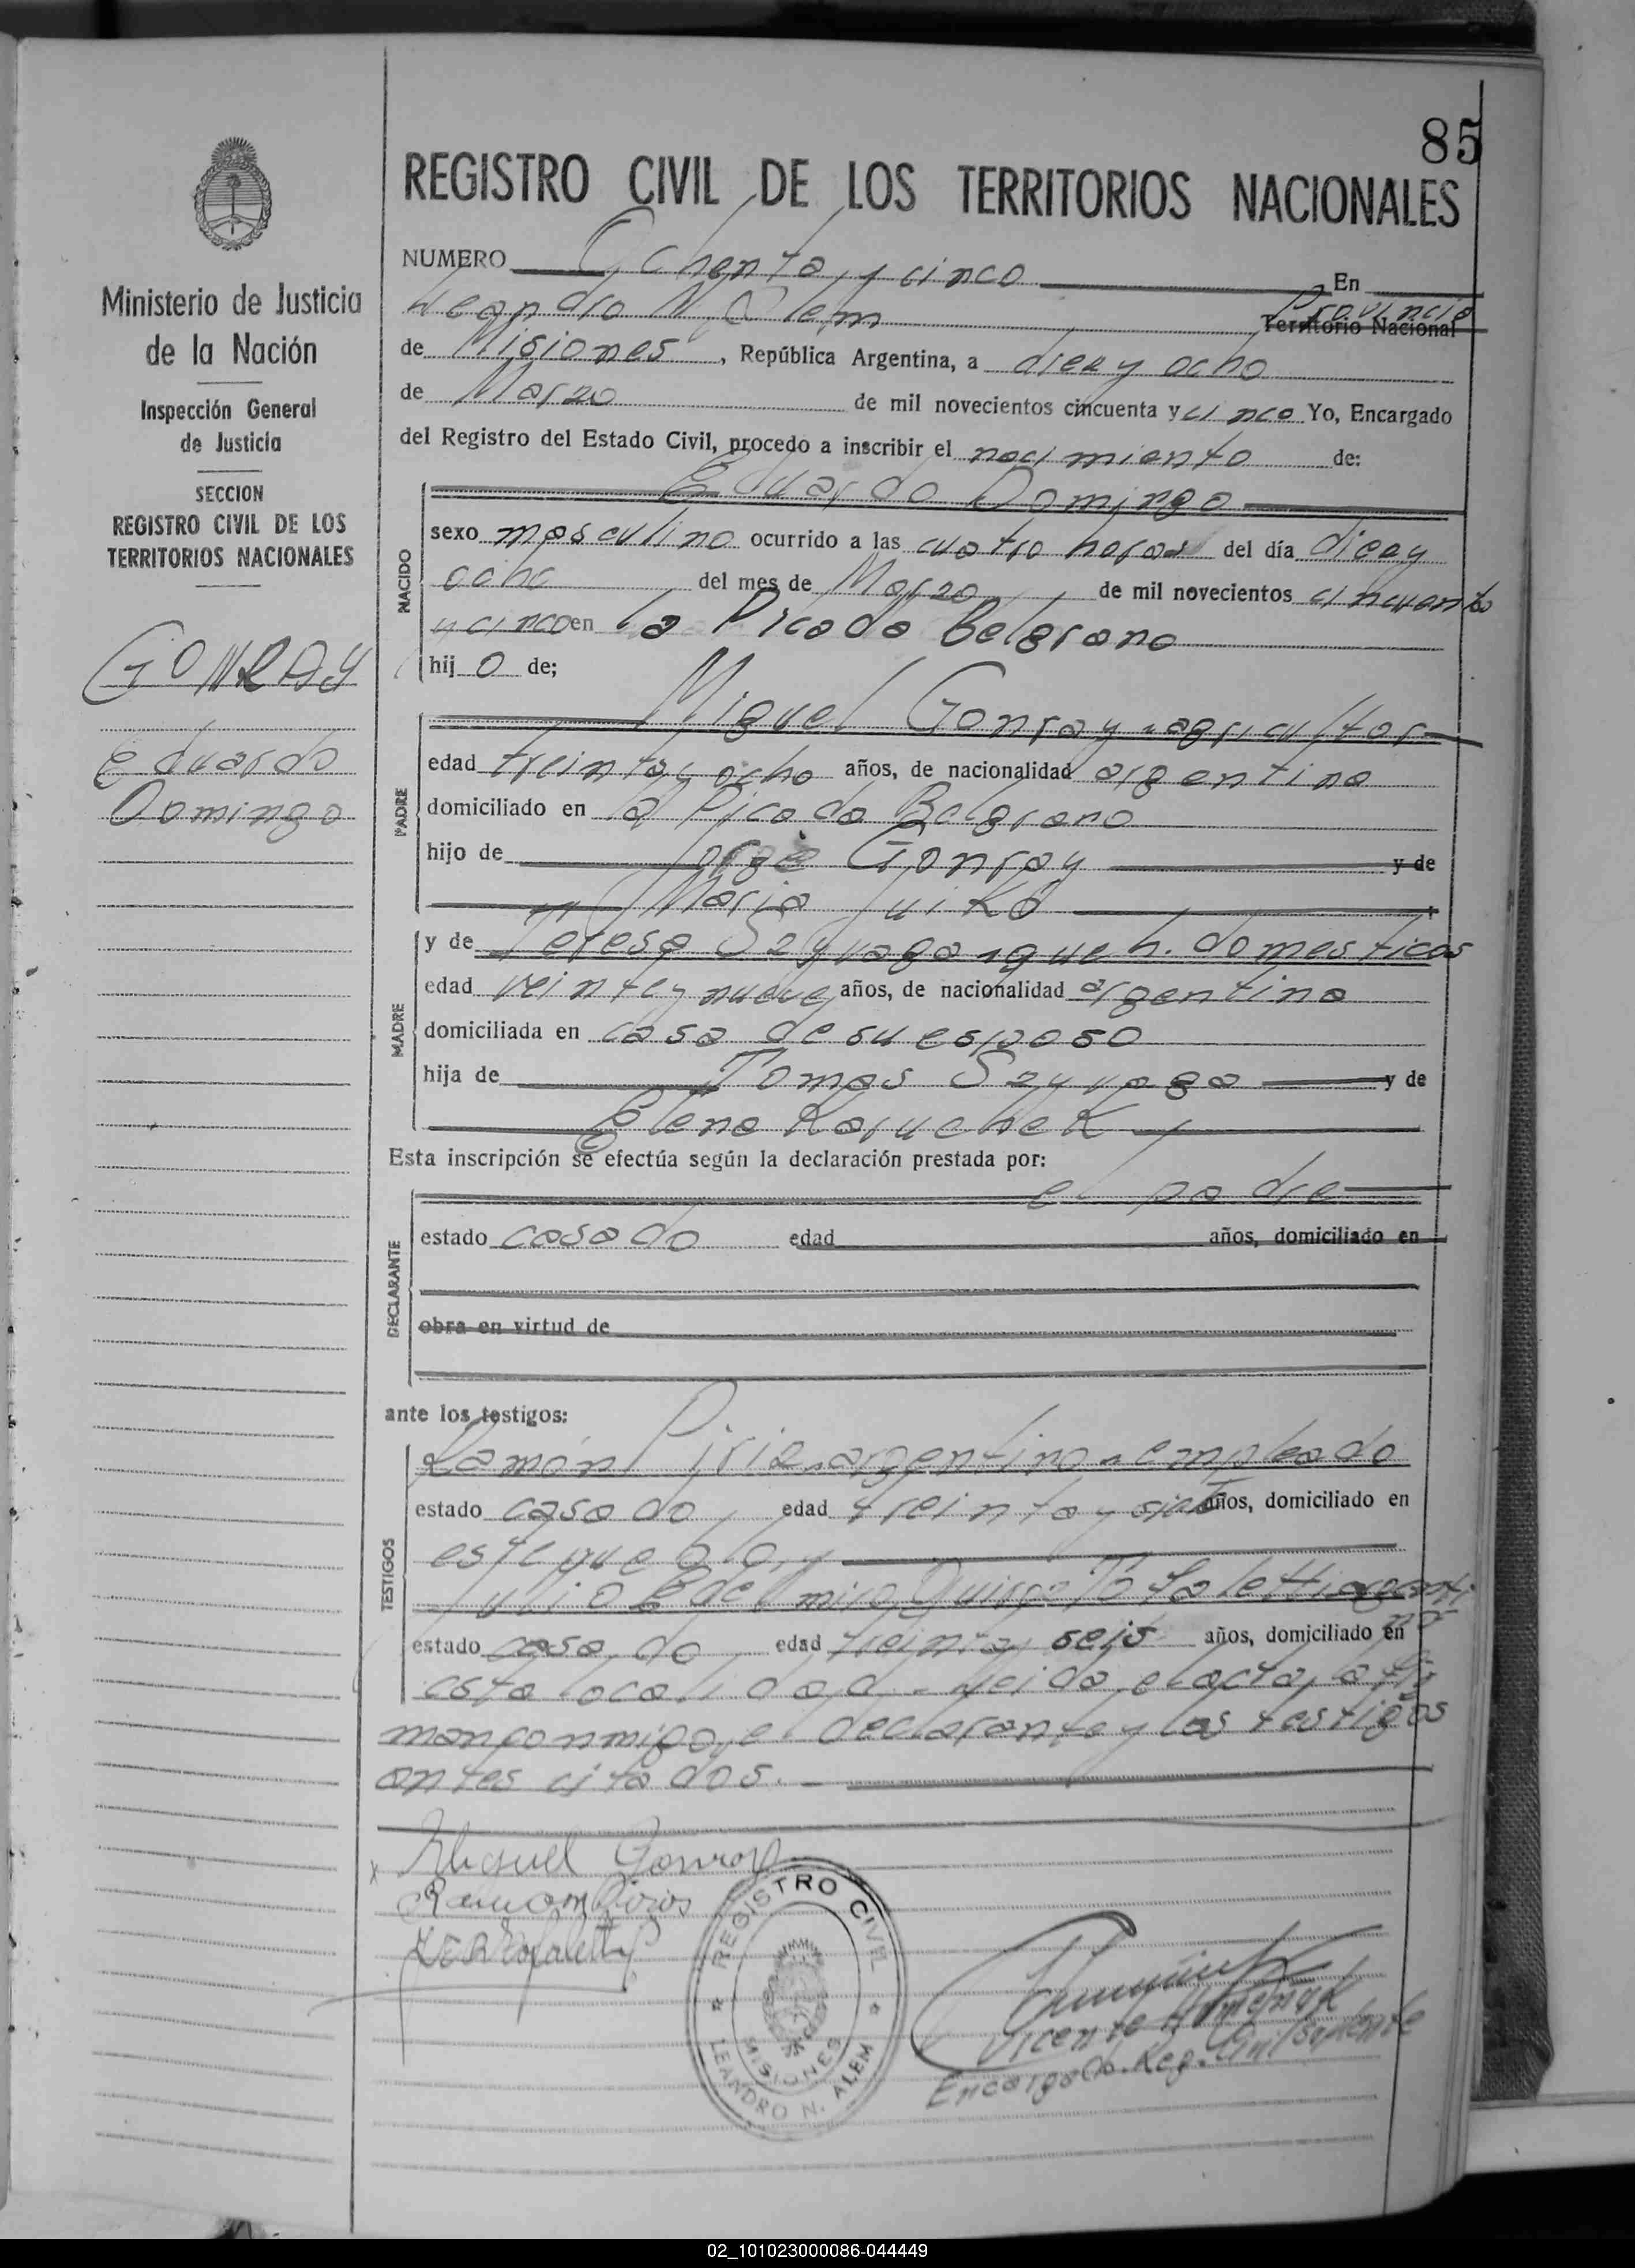 85
REGISTRO CIVIL DE LOS TERRITORIOS NACIONALES
Ministerio de Justicia
de la Nación
Inspección General
de Justicia
SECCION
REGISTRO CIVIL DE LOS
TERRITORIOS NACIONALES
GONRAY
Eduardo
Domingo
NUMERO Ochenta y cinco En
Leandro N Alem Provincia
Territorio Nacional
de Misiones, República Argentina, a diez y ocho
de Marzo de mil novecientos cincuenta y cinco Yo, Encargado
del Registro del Estado Civil, procedo a inscribir el nacimiento de:
NACIDO
Eduardo Domingo
sexo masculino ocurrido a las cuatro horas del día diez y
ocho del mes de Marzo de mil novecientos cincuenta
y cinco en la Picada Belgrano
hijo de;
PADRE
Miguel Gonray - agricultor
edad treinta y ocho años, de nacionalidad argentina
domiciliado en la Picada Belgrano
hijo de Jorge Gonray y de
María
MADRE
y de Teresa h. domesticos
edad veinte y nueve años, de nacionalidad argentina
domiciliada en casa de su esposo
hija de Tomas y de
Elena Karuchek
Esta inscripción se efectúa según la declaración prestada por:
DECLARANTE
el padre
estado casado edad años, domiciliado en
obra en virtud de
ante los testigos:
TESTIGOS
Ramón Piriz - argentino - empleado
estado casado edad treinta y siete años, domiciliado en
este pueblo, y
Julio Edelmiro Totaletti argenti-
no
estado casado edad treinta y seis años, domiciliado en
esta localidad. Leida el acta, la fir-
man conmigo, el declarante y los testigos
antes citados.
x Miguel Gonray
Ramon Piris
REGISTRO CIVIL
MISIONES
LEANDRO N. ALEM
Vicente
Encargado Reg. Civil Suplente
02_101023000086-044449